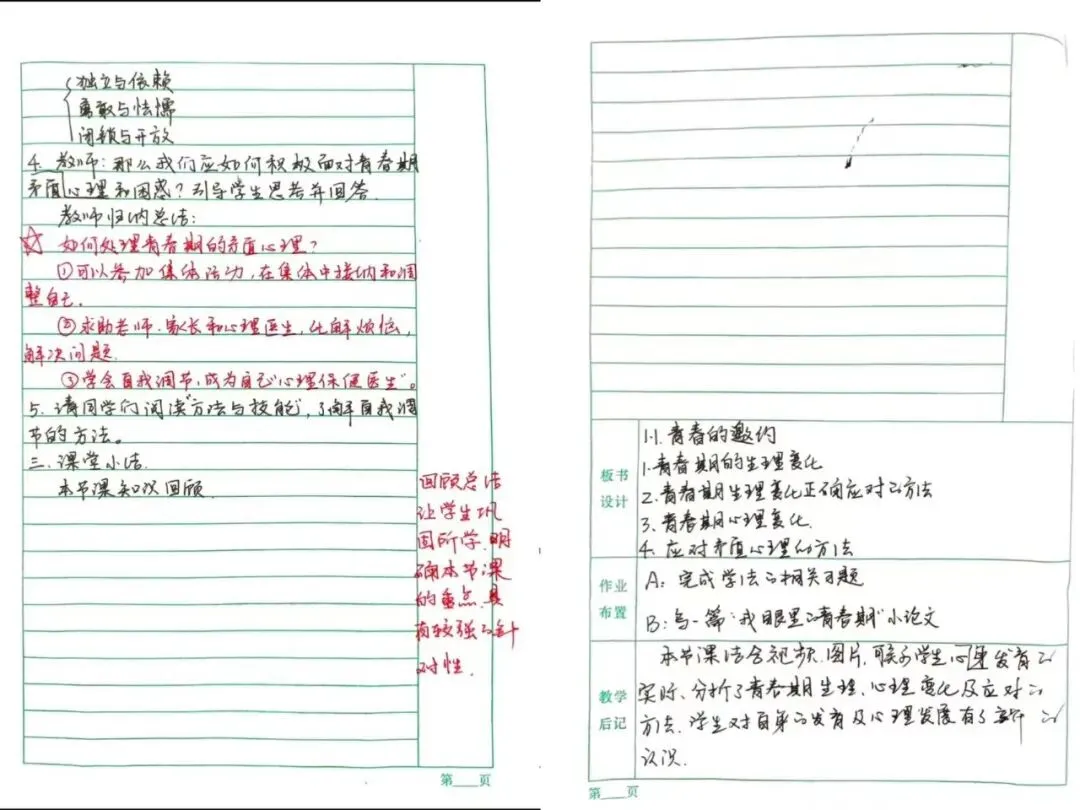 独立与依赖
勇敢与怯懦
闭锁与开放
4. 教师：那么我们应如何积极面对青春期
矛盾心理和困惑？引导学生思考并回答.
教师归纳总结：
☆ 如何处理青春期的矛盾心理？
①可以参加集体活动,在集体中接纳和调
整自己.
②求助老师、家长和心理医生,化解烦恼,
解决问题.
③学会自我调节,成为自己“心理保健医生”。
5. 请同学们阅读“方法与技能”,了解自我调
节的方法。
三.课堂小结.
本节课知识回顾.
回顾总结
让学生巩
固所学.明
确本节课
的重点.具
有较强的针
对性.
第 页
板书
设计
1.1.青春的邀约
1.青春期的生理变化
2.青春期生理变化正确应对的方法
3.青春期心理变化.
4.应对矛盾心理的方法
作业
布置
A：完成学法的相关习题
B：写一篇“我眼里的青春期”小论文
教学
后记
本节课结合视频.图片,联系学生心理发育的
实际、分析了青春期生理、心理变化及应对的
方法.学生对自身的发育及心理发展有了 的
认识.
第 页